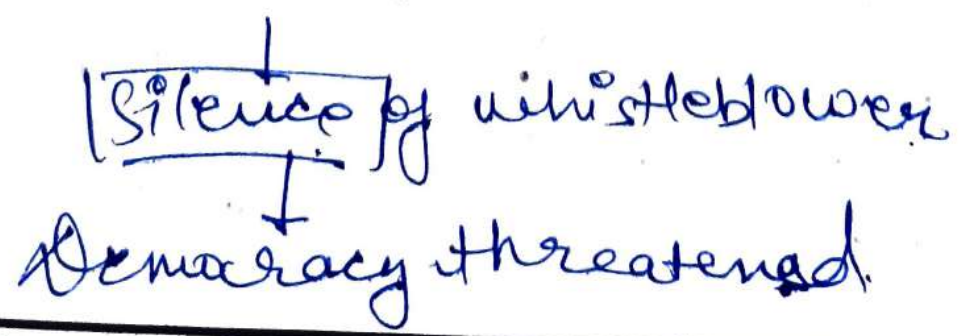 Silence of whistleblower
Democracy threatened.